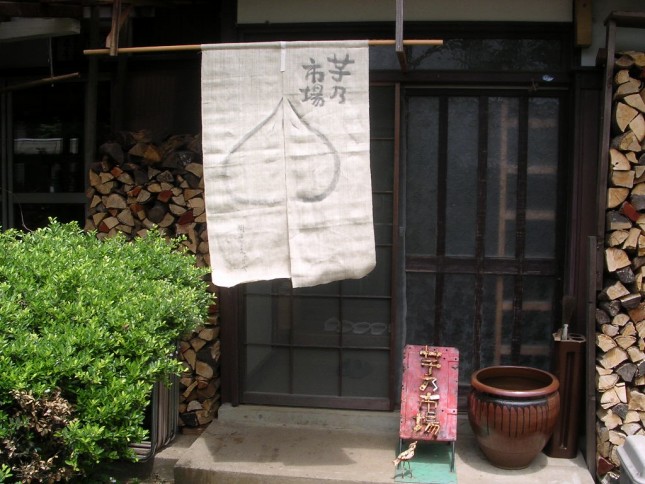 芋乃
市場
芋乃市場